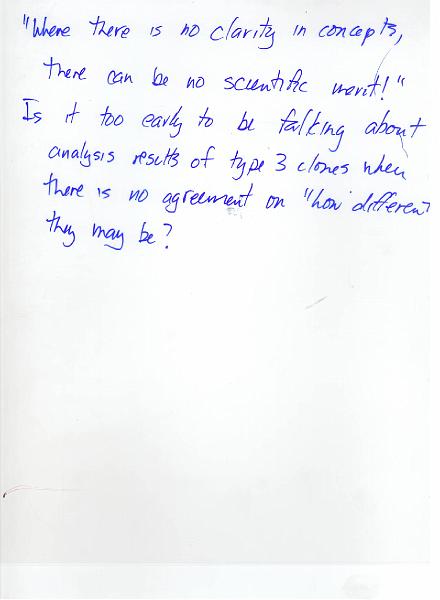 "Where there is no clarity in concepts,
there can be no scientific merit!"
Is it too early to be talking about
analysis results of type 3 clones when
there is no agreement on "how different
they may be?